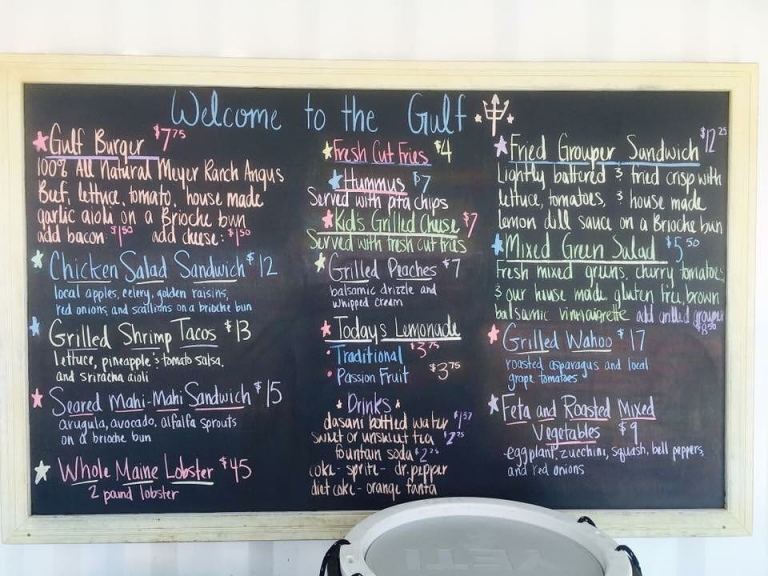 Welcome to the Gulf
Gulf Burger $7.75
100% All Natural Meyer Ranch Angus
Beef, lettuce, tomato, house made
garlic aioli on a Brioche bun
add bacon: $1.50 add cheese: $1.50
Chicken Salad Sandwich $12
local apples, celery, golden raisins,
red onions, and scallions on a brioche bun
Grilled Shrimp Tacos $13
lettuce, pineapple & tomato salsa,
and sriracha aioli
Seared Mahi-Mahi Sandwich $15
arugula, avocado, alfalfa sprouts
on a brioche bun
Whole Maine Lobster $45
2 pound lobster
Fresh Cut Fries $4
Hummus $7
Served with pita chips
Kid's Grilled Cheese $7
Served with fresh cut fries
Grilled Peaches $7
balsamic drizzle and
whipped cream
Today's Lemonade
Traditional $3.75
Passion Fruit $3.75
Drinks
dasani bottled water $1.57
sweet or unsweet tea $2.75
fountain soda $2.75
coke - sprite - dr. pepper
diet coke - orange fanta
Fried Grouper Sandwich $12.25
Lightly battered & fried crisp with
lettuce, tomatoes, & house made
lemon dill sauce on a Brioche bun
Mixed Green Salad $5.50
Fresh mixed greens, cherry tomatoes,
& our house made gluten free, brown
balsamic vinaigrette add grilled grouper
$8.50
Grilled Wahoo $17
roasted asparagus and local
grape tomatoes
Feta and Roasted Mixed
Vegetables $9
-eggplant, zucchini, squash, bell peppers,
and red onions
YETI